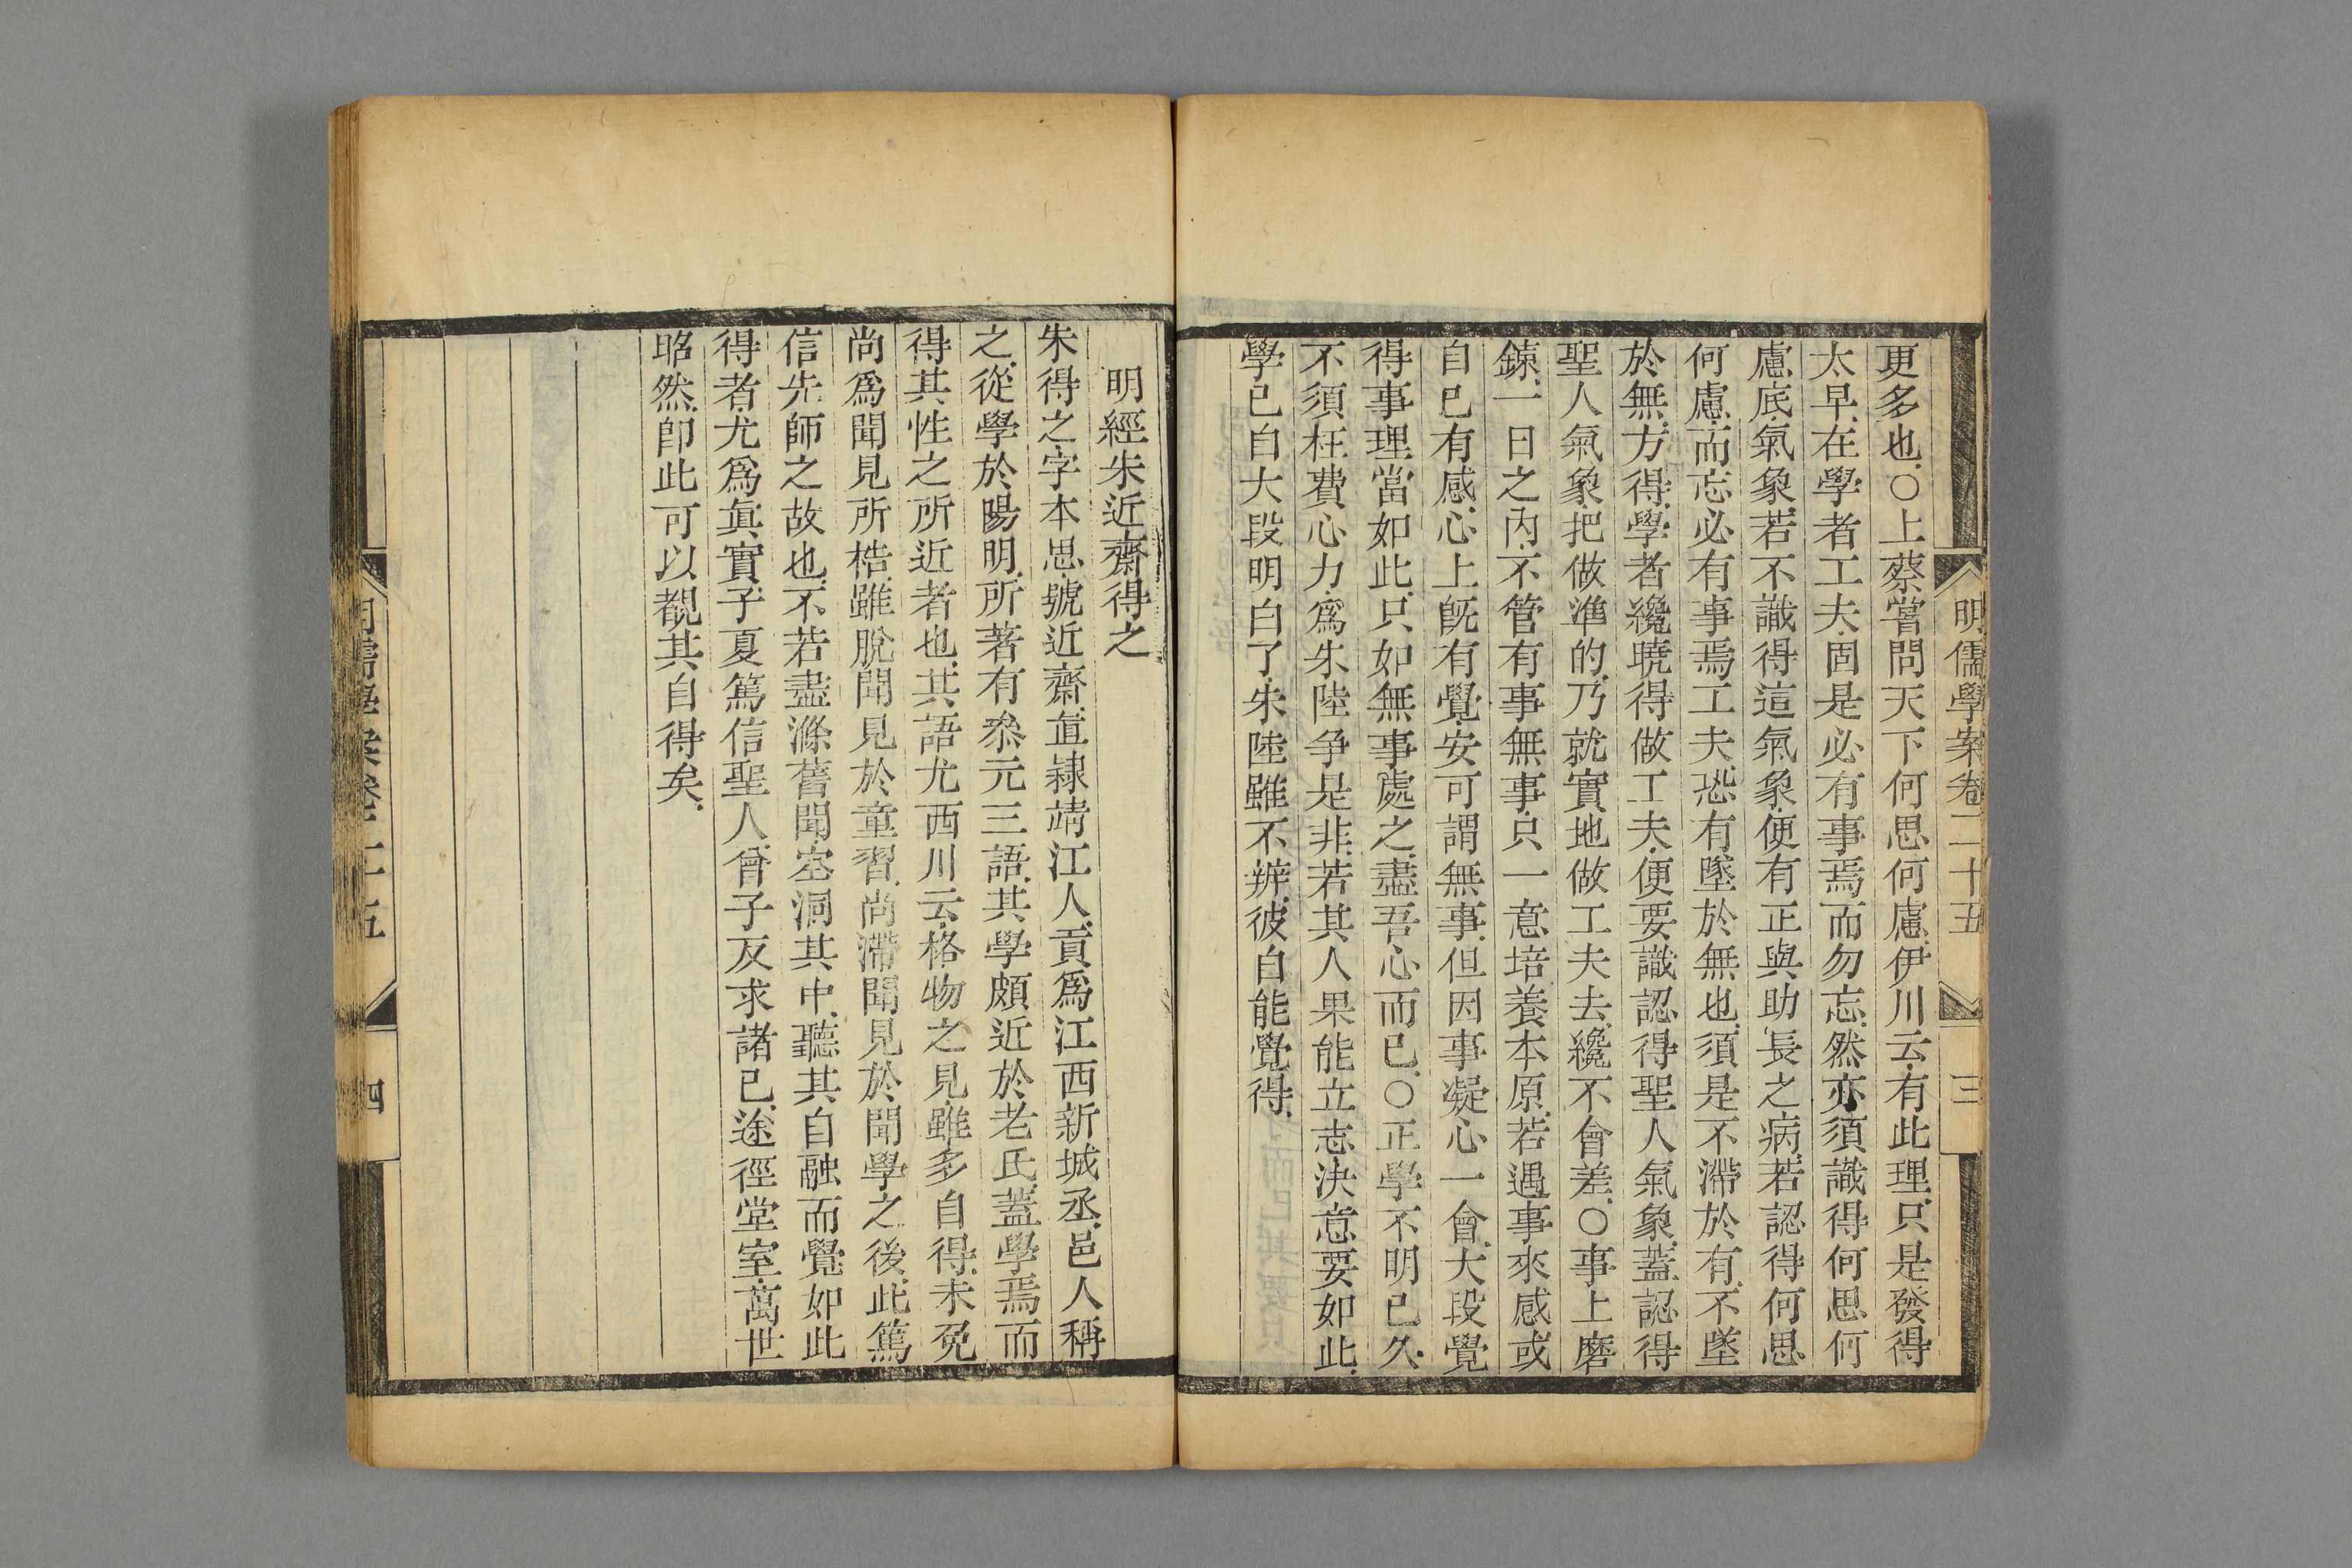 明儒學案卷二十五
三
更多也○上蔡嘗問天下何思何慮伊川云有此理只是發得
太早在學者工夫固是必有事焉而勿忘然亦須識得何思何
慮底氣象若不識得這氣象便有正與助長之病若認得何思
何慮而忘必有事焉工夫恐有墜於無也須是不滯於有不墜
於無方得學者纔曉得做工夫便要識認得聖人氣象蓋認得
聖人氣象把做準的乃就實地做工夫去纔不會差○事上磨
鍊一日之內不管有事無事只一意培養本原若遇事來感或
自己有感心上既有覺安可謂無事但因事凝心一會大段覺
得事理當如此只如無事處之盡吾心而已○正學不明已久
不須枉費心力爲朱陸争是非若其人果能立志決意要如此
學已自大段明白了朱陸雖不辨彼自能覺得
明經朱近齋得之
朱得之字本思號近齋直隸靖江人貢爲江西新城丞邑人稱
之從學於陽明所著有叅元三語其學頗近於老氏蓋學焉而
得其性之所近者也其語尤西川云格物之見雖多自得未免
尚爲聞見所梏雖脫聞見於童習尚滯聞見於聞學之後此篤
信先師之故也不若盡滌舊聞空洞其中聽其自融而覺如此
得者尤爲眞實子夏篤信聖人曾子反求諸己途徑堂室萬世
昭然卽此可以覩其自得矣
明儒學案卷二十五
四